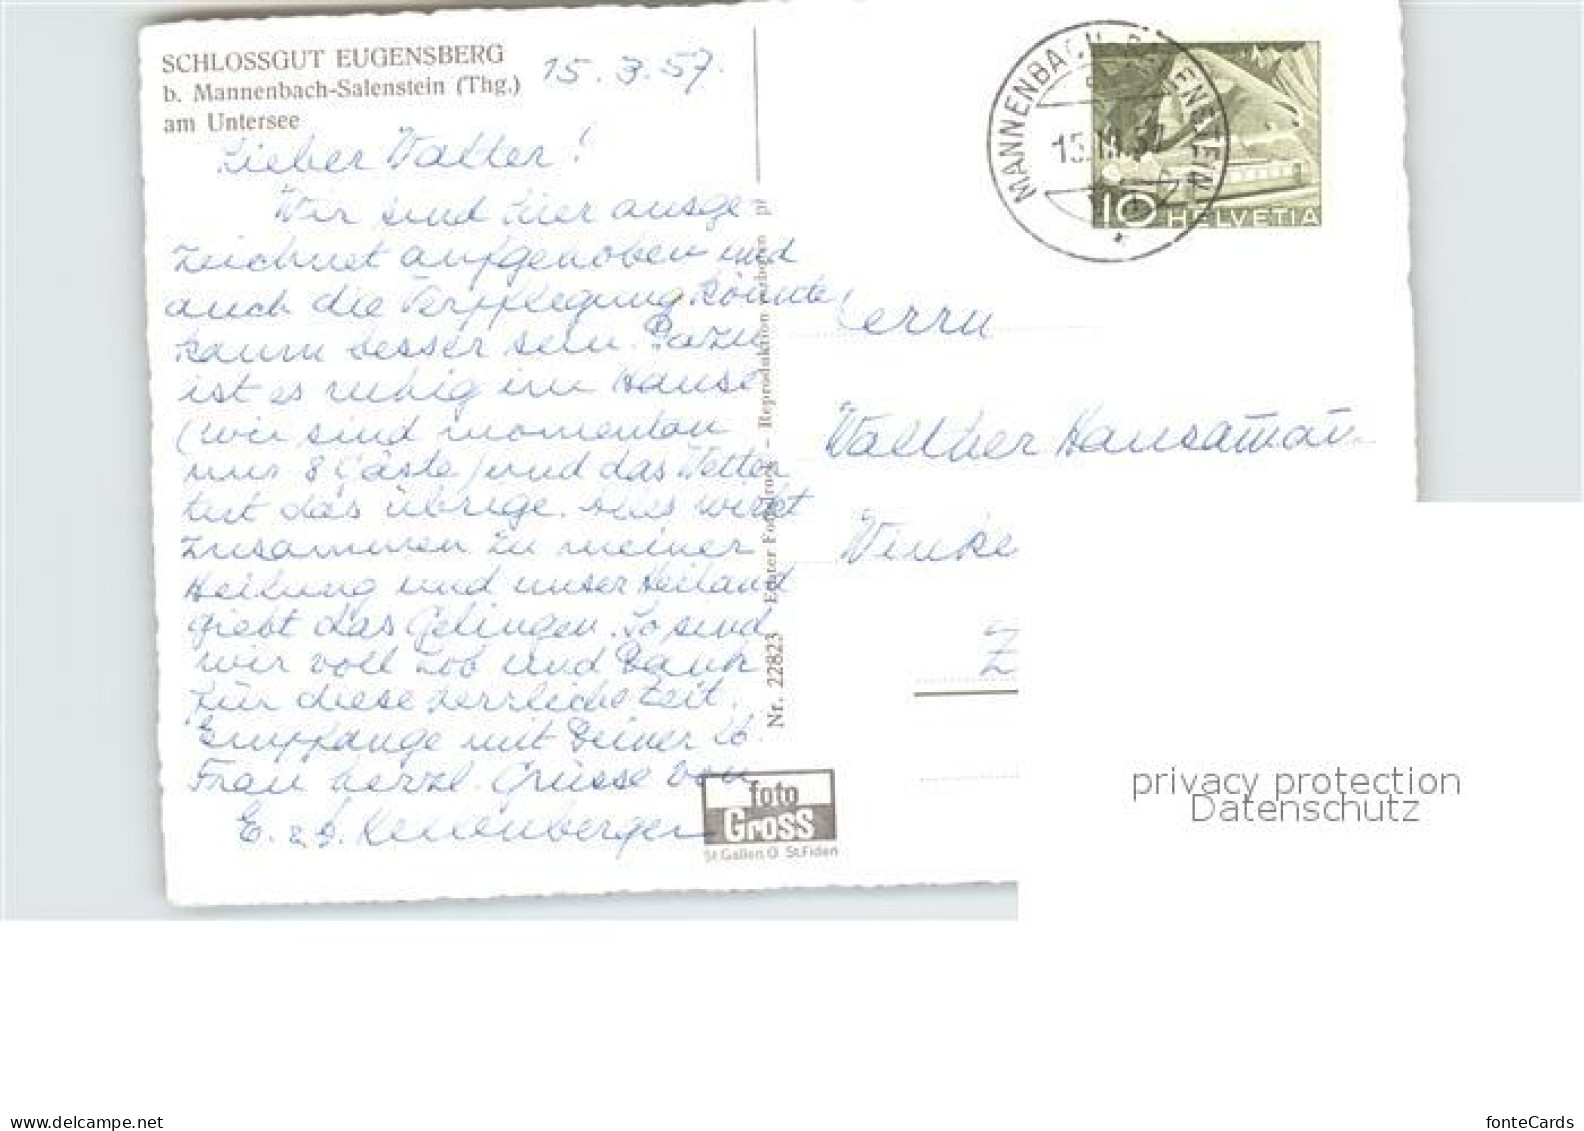 SCHLOSSGUT EUGENSBERG
b. Mannenbach-Salenstein (Thg.)
am Untersee
15. 3. 57.
Lieber Walter!
Wir sind hier ausge-
zeichnet aufgehoben und
auch die Verpflegung könnte
kaum besser sein. Dazu
ist es ruhig im Hause
(wir sind momentan
nur 8 Gäste) und das Wetter
tut das übrige. Alles wirkt
zusammen zu meiner
Heilung und unser Heiland
giebt das Gelingen. So sind
wir voll Lob und Dank
für diese herrliche Zeit.
Empfange mit Deiner lb.
Frau herzl. Grüsse von
E. & 
Nr. 22823 Echter Fotodruck – Reproduktion verboten
foto
Gross
St.Gallen O St.Fiden
MANNENBACH-SALENSTEIN
15.III.57
10 HELVETIA
Herrn
Walther
Z
privacy protection
Datenschutz
www.delcampe.net
fonteCards